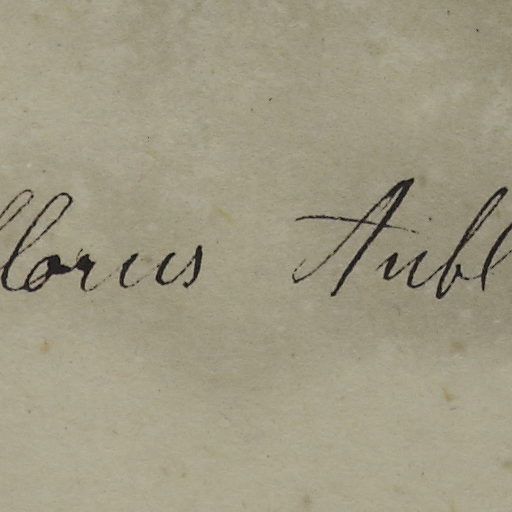 florus Aubl